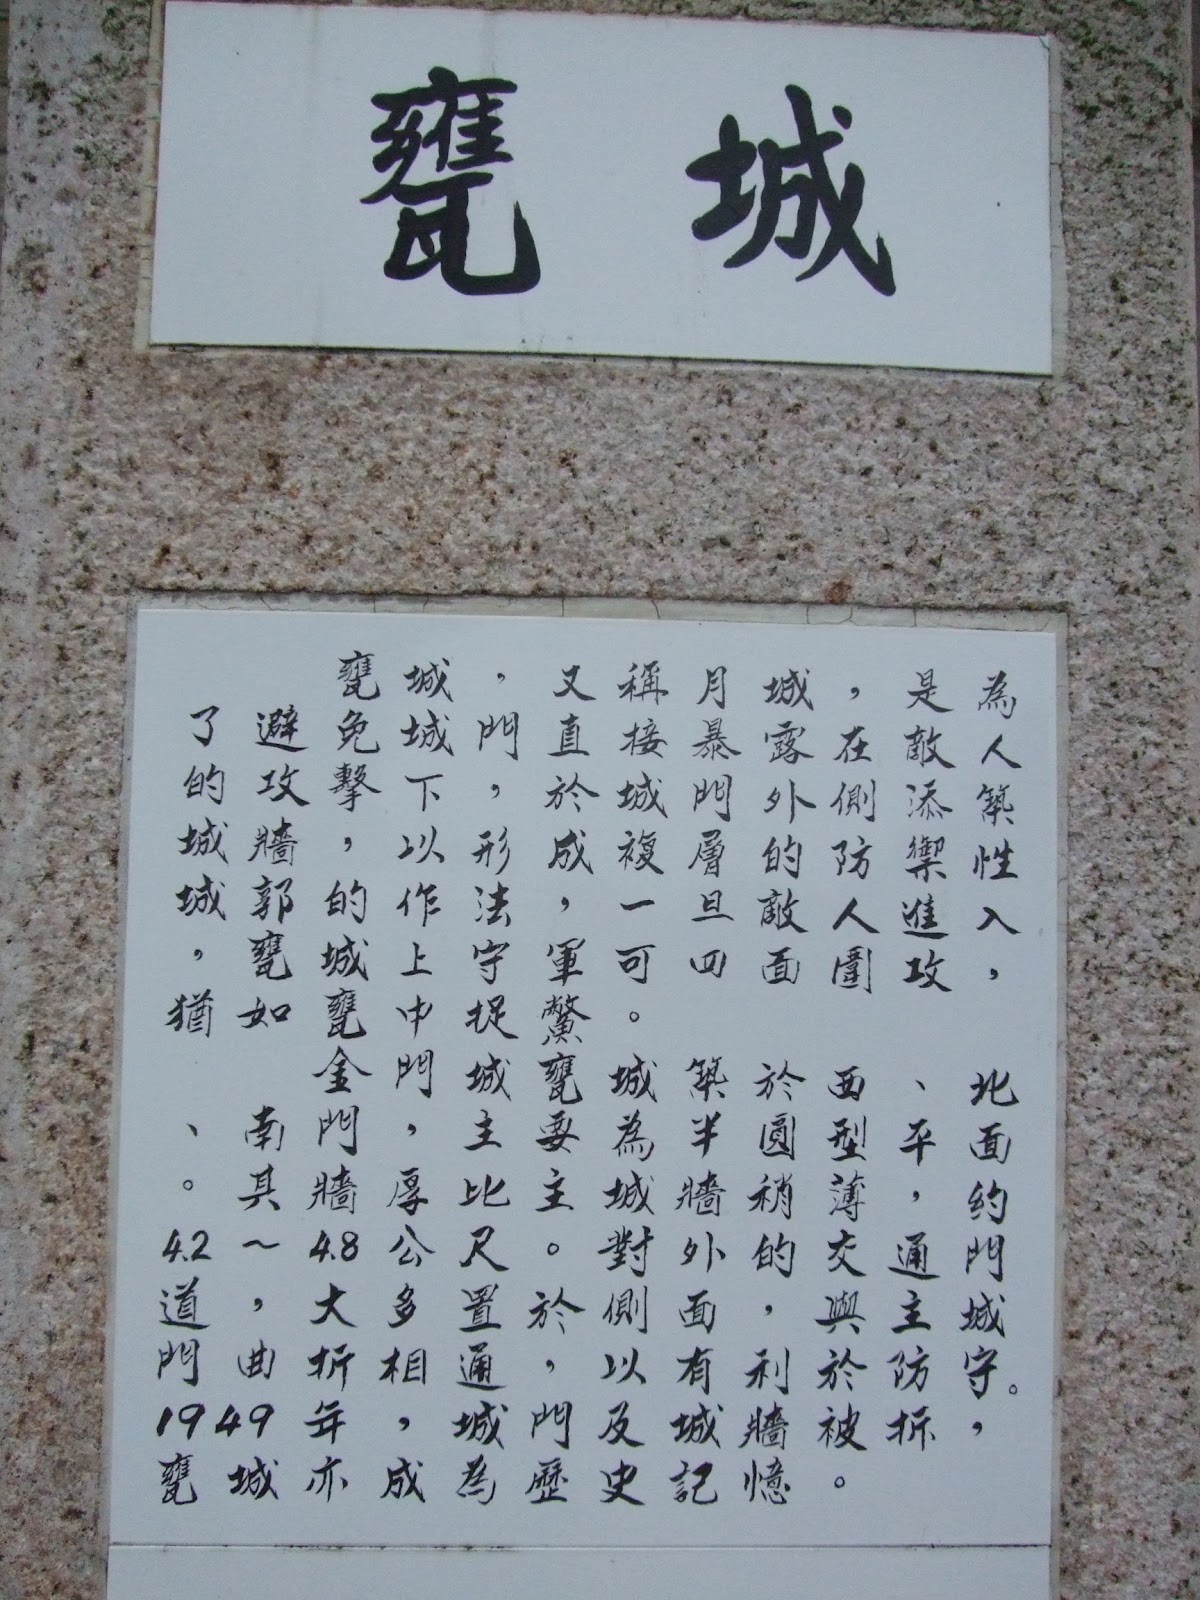 甕城
甕城，又稱月城，是為
了避免城門直接暴露在敵人
的攻擊下，於城門外側添築
城牆，以形成複層的防禦性
城郭的作法，一旦敵人進入
，甕城上守軍可四面圍攻，
猶如甕中捉鱉。
金門城甕城築於西、北
、南門主要為半圓型平面
。其牆厚比主城牆稍薄，約
4.2～4.8公尺。對外的交通門
道，大多置於側面，與主城
門曲折相通，以利於防守。
1949年，城門及城牆被拆，
甕城亦成為歷史記憶。